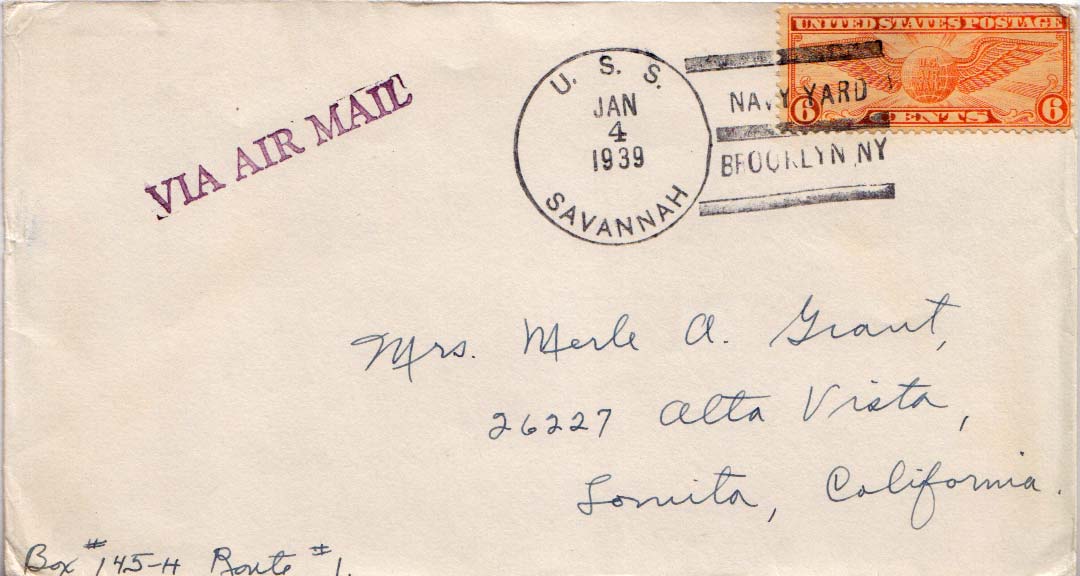 UNITED STATES POSTAGE
6 CENTS 6
U. S. S.
JAN
4
1939
SAVANNAH
NAVY YARD
BROOKLYN, NY
VIA AIR MAIL
Mrs. Merle A. Grant,
26227 Alta Vista,
Lomita, California.
Box #145-H Route #1.